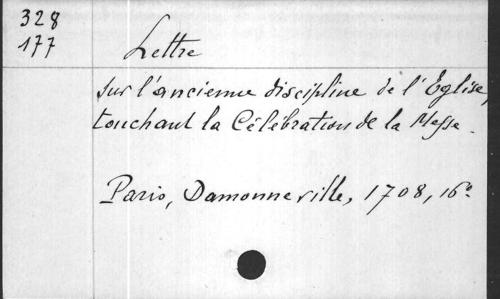 328
177
Lettre
sur l'ancienne discipline de l'Eglise,
touchant la Célébration de la Messe.
Paris, Damonneville, 1708, 16º